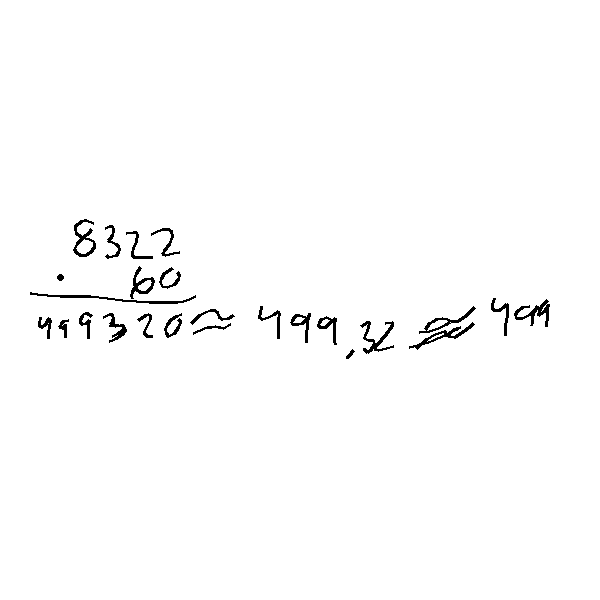 8322
· 60
499320 ≈ 499,32 ≈ 499